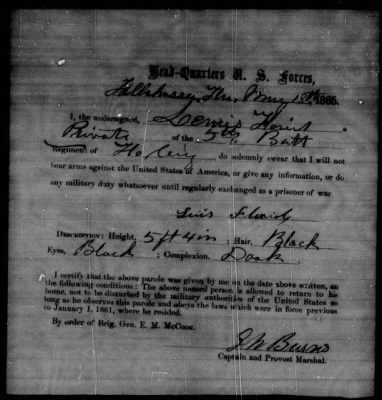 Head-Quarters U. S. Forces,
Tallahassee Fla, May 15th, 1865.
I, the undersigned, Lewis
Private of the 5th Batt
Regiment of Fla Cavy do solemnly swear that I will not
bear arms against the United States of America, or give any information, or do
any military duty whatsoever until regularly exchanged as a prisoner of war.
Description: Height, 5 ft 4 in; Hair, Black
Eyes, Black; Complexion, Dark
I certify that the above parole was given by me on the date above written, on
the following conditions: The above named person is allowed to return to his
home, not to be disturbed by the military authorities of the United States so
long as he observes this parole and obeys the laws which were in force previous
to January 1, 1861, where he resided.
By order of Brig. Gen. E. M. McCook.
Captain and Provost Marshal.